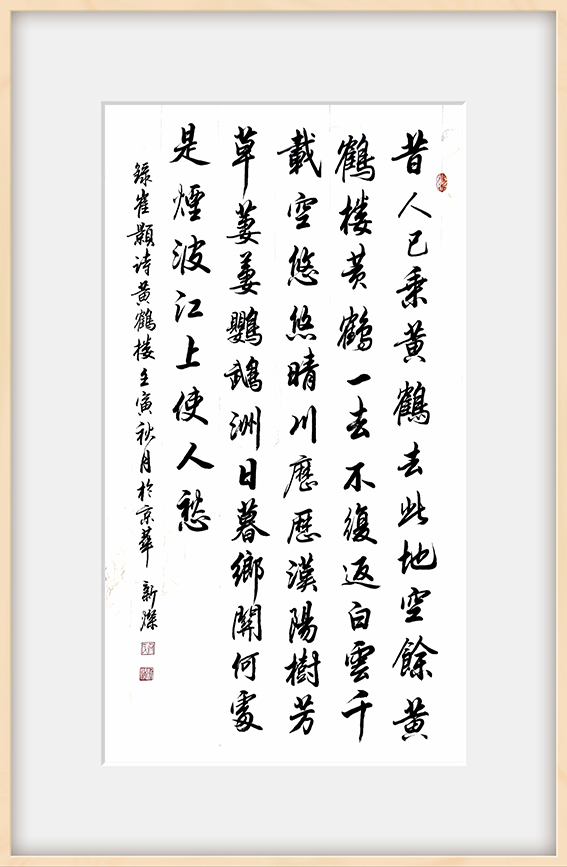 昔人已乘黄鶴去此地空餘黄
鶴楼黄鶴一去不復返白雲千
載空悠悠晴川歷歷漢陽樹芳
草萋萋鸚鵡洲日暮鄉關何處
是煙波江上使人愁
錄崔顥诗黄鶴楼壬寅秋月於京華 新燦